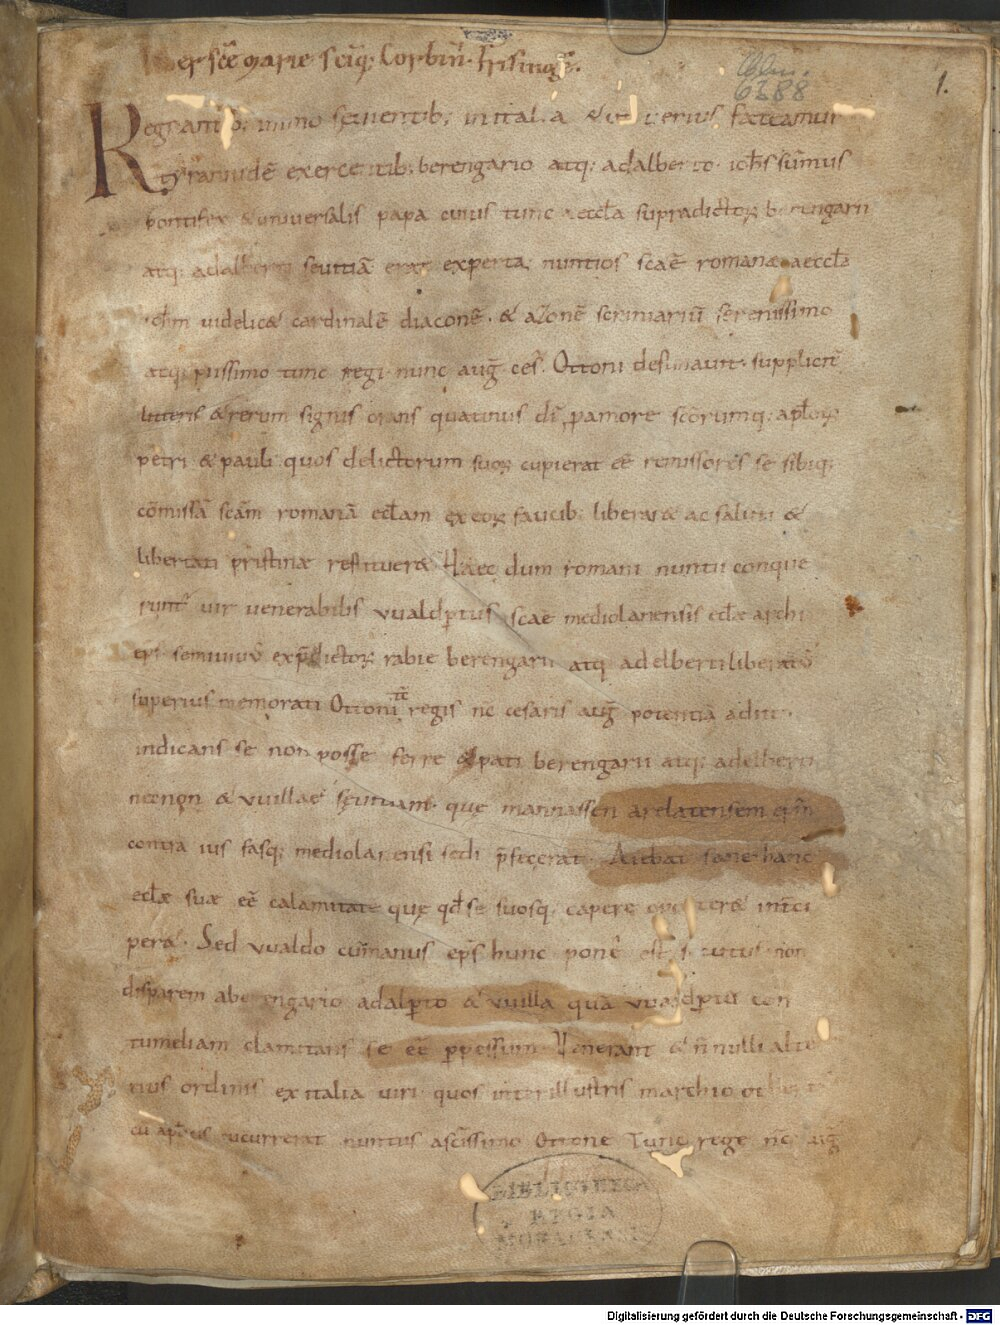 Liber sc̄e Marie sc̄iq; Corbin̄i Frising̃.
Clm.
6388
1.
Regnantib; immo sęvientib; in italia & ut verius fateamur
tyrannidē exercentib; berengario atq; adalberto ioh̄s sūmus
pontifex & universalis papa cuius tunc aeccl̄a supradictoꝝ berengarii
atq; adalberti sevitiā erat experta, nuntios scāe romanae aeccl̄ae
ioh̄m videlic& cardinalē diaconē & azonē scriniariū serenissimo
atq; piissimo tunc regi nunc aug̃ ces̃ Ottoni destinavit supplicit̃
litteris & rerum signis orans quatinus dī p amore scōrumq; apl̄oꝝ
petri & pauli quos delictorum suoꝝ cupierat eē remissores se sibiq;
cōmissā scām romanā eccl̄am ex eoꝝ faucib; liberar& ac saluti &
libertati pristinae restituer& Haec dum romani nuntii conque
runt̃ vir venerabilis vvaldptus scāe mediolanensis eccl̄ae archi
ep̄s semivivus ex p̄dictoꝝ rabie berengarii atq; adelberti liberatus
superius memorati Ottoni tc̄ regis nc̄ cesaris aug̃ potentiā adiit
indicans se non posse ferre & pati berengarii atq; adelberti
necnon & vvillae sęvitiam quę mannassen arelatensem ep̄m
contra ius fasq; mediolanensi sedi p̄fecerat. Aiebat sane hanc
eccl̄ae suae eē calamitatē quę qd̄ se suosq; capere oporter& int̃ci
per&. Sed vvaldo cumanus ep̄s hunc pone est secutus non
disparem a berengario adalpto & vvilla quā vvaldptus con
tumeliam clamitans se eē ppessum Venerant & n̄nulli alte
rius ordinis ex italia viri quos inter illustris marchio otbertus
cū ap̄licis cucurrerat nuntiis a sc̄issimo Ottone Tunc rege nc̄ aug̃
BIBLIOTHECA
REGIA
MONACENSIS
Digitalisierung gefördert durch die Deutsche Forschungsgemeinschaft - DFG